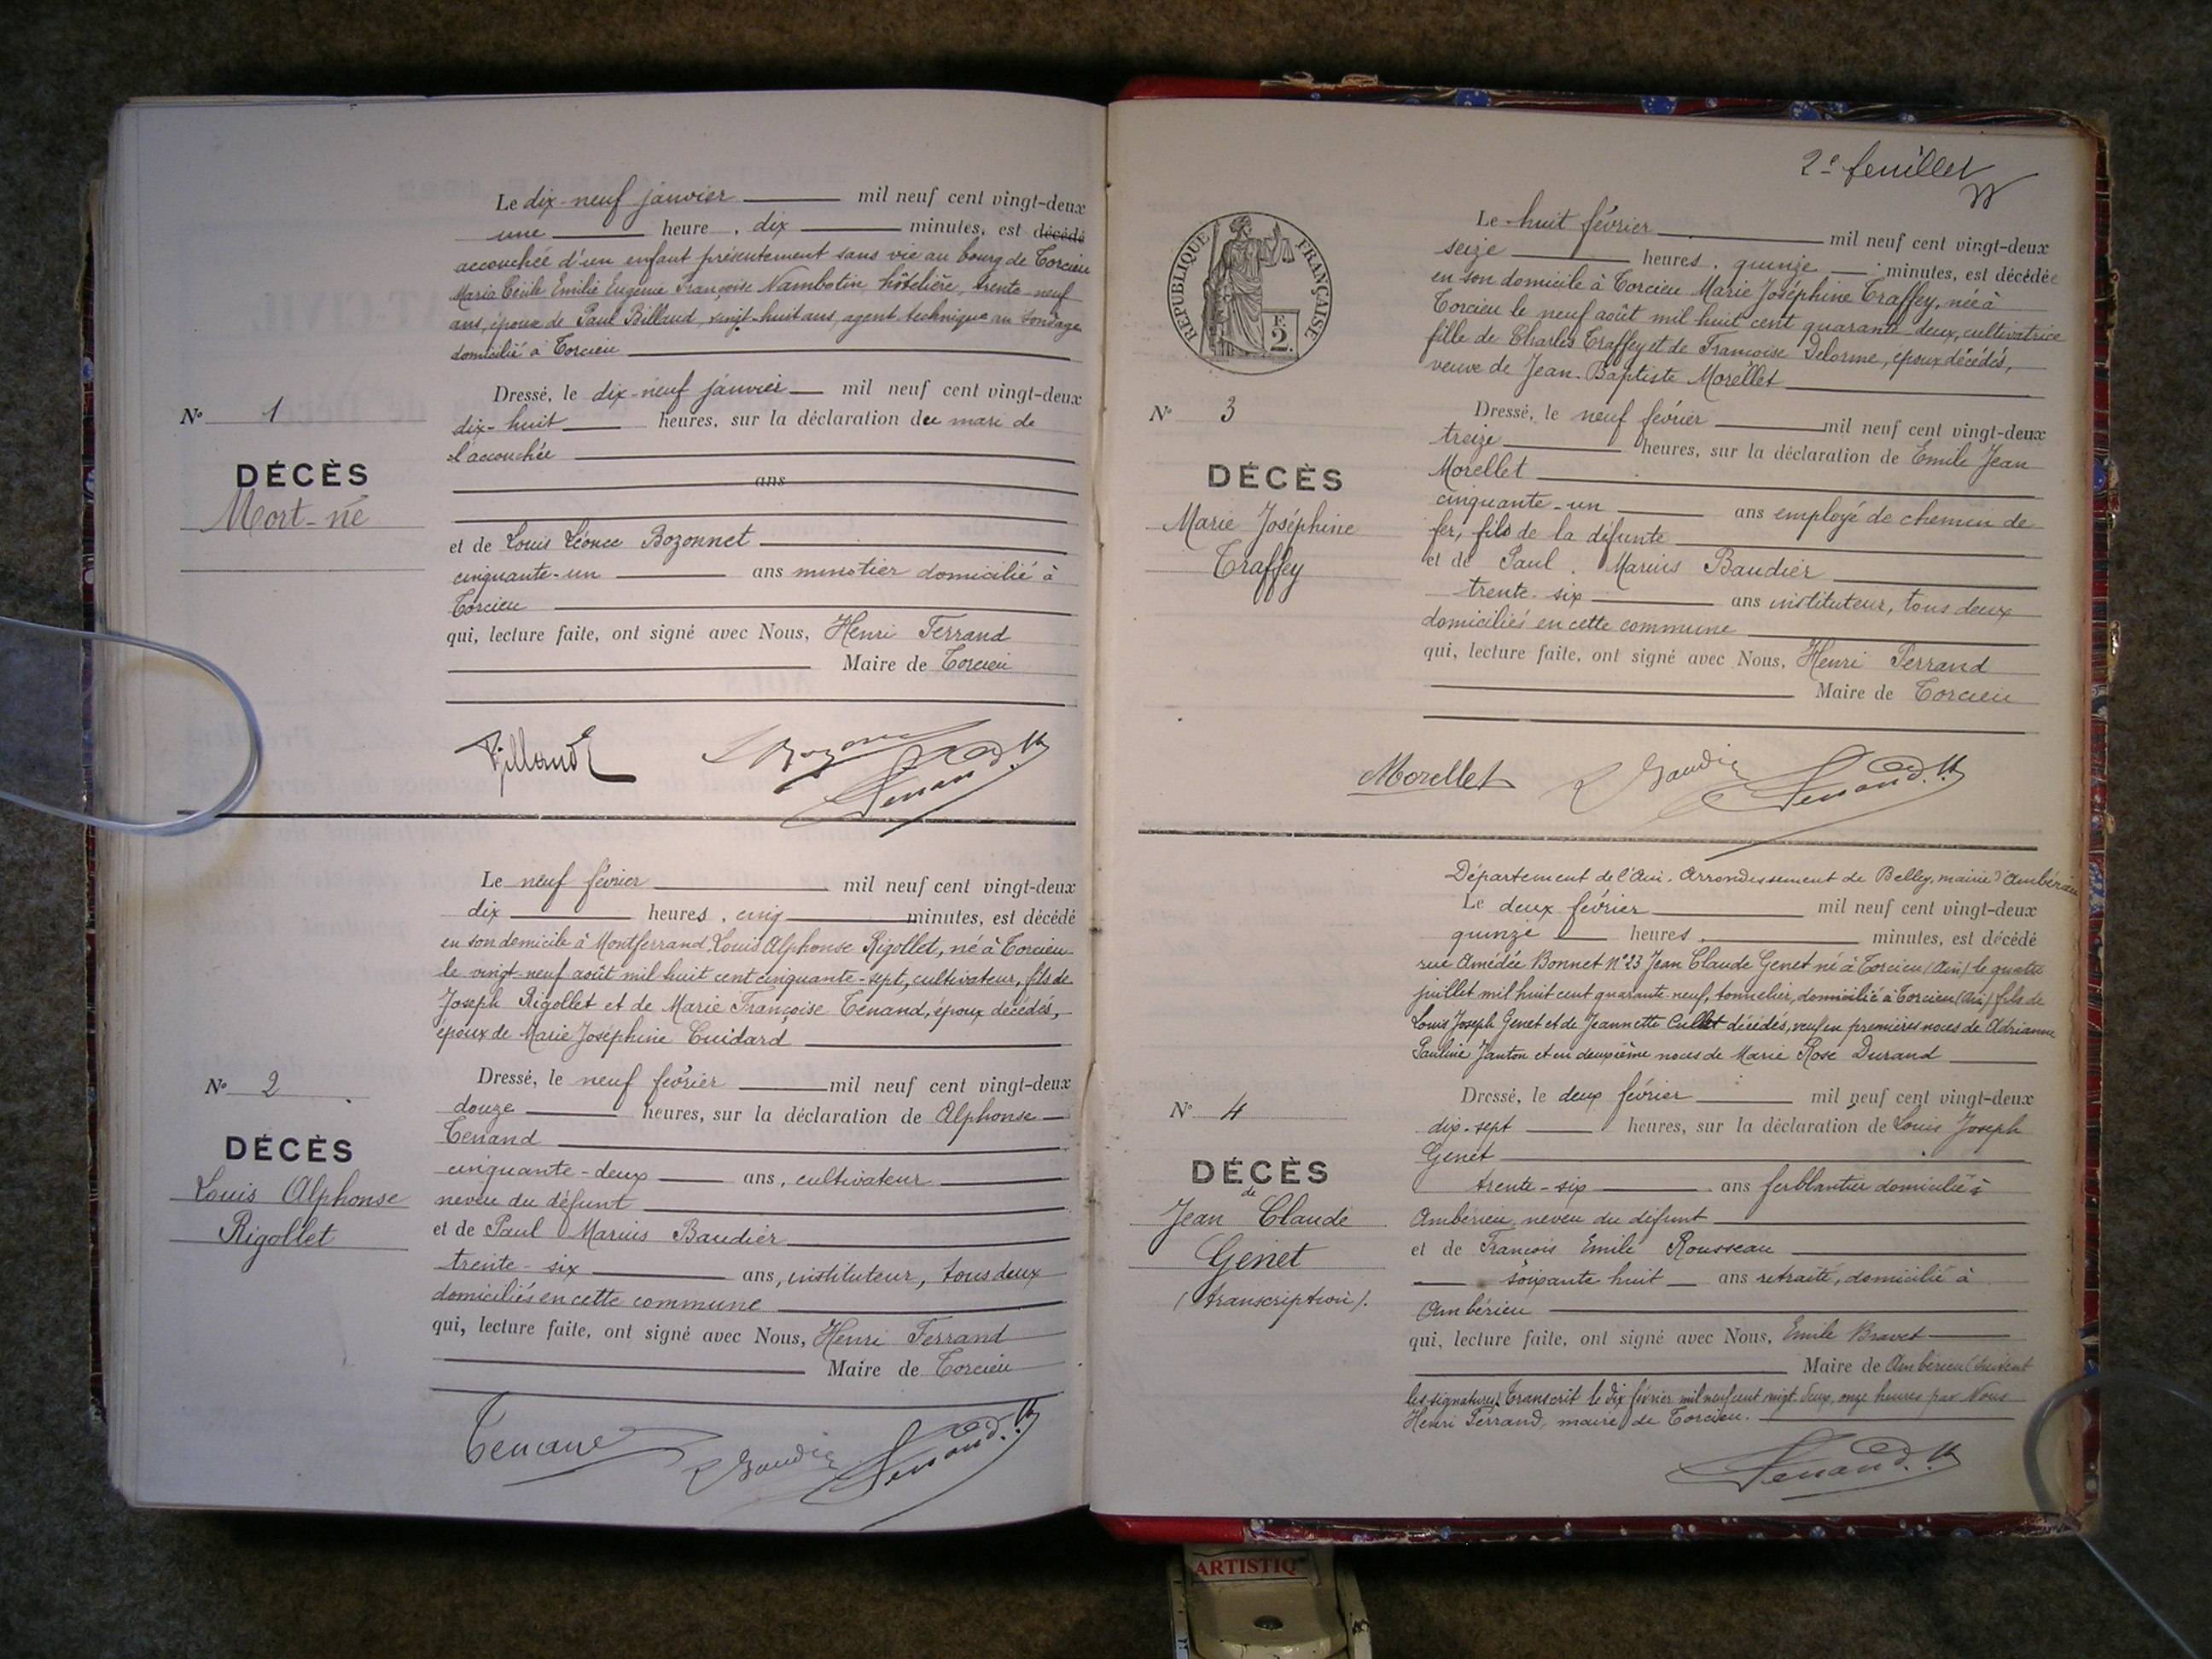 Le dix-neuf janvier mil neuf cent vingt-deux
une heure, dix minutes, est décédé
accouchée d'un enfant présentement sans vie au bourg de Torcieu
Maria Cécile Emilie Eugénie Françoise Nambotin, hôtelière, trente-neuf
ans, épouse de Paul Billaud, vingt-huit ans, agent technique au sondage
domicilié à Torcieu
Dressé, le dix-neuf janvier mil neuf cent vingt-deux
dix-huit heures, sur la déclaration du mari de
l'accouchée
ans
et de Louis Léonce Bozonnet
cinquante-un ans minotier domicilié à
Torcieu
qui, lecture faite, ont signé avec Nous, Henri Ferrand
Maire de Torcieu
N° 1
DÉCÈS
Mort-né
Billaud
Ferrand
Le neuf février mil neuf cent vingt-deux
dix heures, cinq minutes, est décédé
en son domicile à Montferrand, Louis Alphonse Rigollet, né à Torcieu
le vingt-neuf août mil huit cent cinquante-sept, cultivateur, fils de
Joseph Rigollet et de Marie Françoise Tenand, époux décédés,
époux de Marie Joséphine Cuidard
Dressé, le neuf février mil neuf cent vingt-deux
douze heures, sur la déclaration de Alphonse
Tenand
cinquante-deux ans, cultivateur
neveu du défunt
et de Paul Marius Baudier
trente-six ans, instituteur, tous deux
domiciliés en cette commune
qui, lecture faite, ont signé avec Nous, Henri Ferrand
Maire de Torcieu
N° 2
DÉCÈS
Louis Alphonse
Rigollet
Tenand
Baudier
Ferrand
2e feuillet
RÉPUBLIQUE FRANÇAISE
F.
2.
Le huit février mil neuf cent vingt-deux
seize heures, quinze minutes, est décédée
en son domicile à Torcieu Marie Joséphine Traffey, née à
Torcieu le neuf août mil huit cent quarante-deux, cultivatrice
fille de Charles Traffey et de Françoise Delorme, époux décédés,
veuve de Jean-Baptiste Morellet
Dressé, le neuf février mil neuf cent vingt-deux
treize heures, sur la déclaration de Emile Jean
Morellet
cinquante-un ans employé de chemin de
fer, fils de la défunte
et de Paul Marius Baudier
trente-six ans instituteur, tous deux
domiciliés en cette commune
qui, lecture faite, ont signé avec Nous, Henri Ferrand
Maire de Torcieu
N° 3
DÉCÈS
Marie Joséphine
Traffey
Morellet
Baudier
Ferrand
Département de l'Ain. Arrondissement de Belley, mairie d'Ambérieu
Le deux février mil neuf cent vingt-deux
quinze heures, minutes, est décédé
rue Amédée Bonnet N°23 Jean Claude Genet né à Torcieu (Ain) le quatre
juillet mil huit cent quarante-neuf, tonnelier, domicilié à Torcieu (Ain) fils de
Louis Joseph Genet et de Jeannette Cullet décédés, veuf en premières noces de Adrianne
Pauline Janton et en deuxième noces de Marie Rose Durand
Dressé, le deux février mil neuf cent vingt-deux
dix-sept heures, sur la déclaration de Louis Joseph
Genet
trente-six ans ferblantier domicilié à
Ambérieu, neveu du défunt
et de François Emile Rousseau
soixante huit ans retraité, domicilié à
Ambérieu
qui, lecture faite, ont signé avec Nous, Emile Bravet
Maire de Ambérieu (suivent
les signatures) Transcrit le dix février mil neuf cent vingt-deux, onze heures par Nous
Henri Ferrand, maire de Torcieu.
N° 4
DÉCÈS
de
Jean Claude
Genet
(transcription).
Ferrand
ARTISTIQ